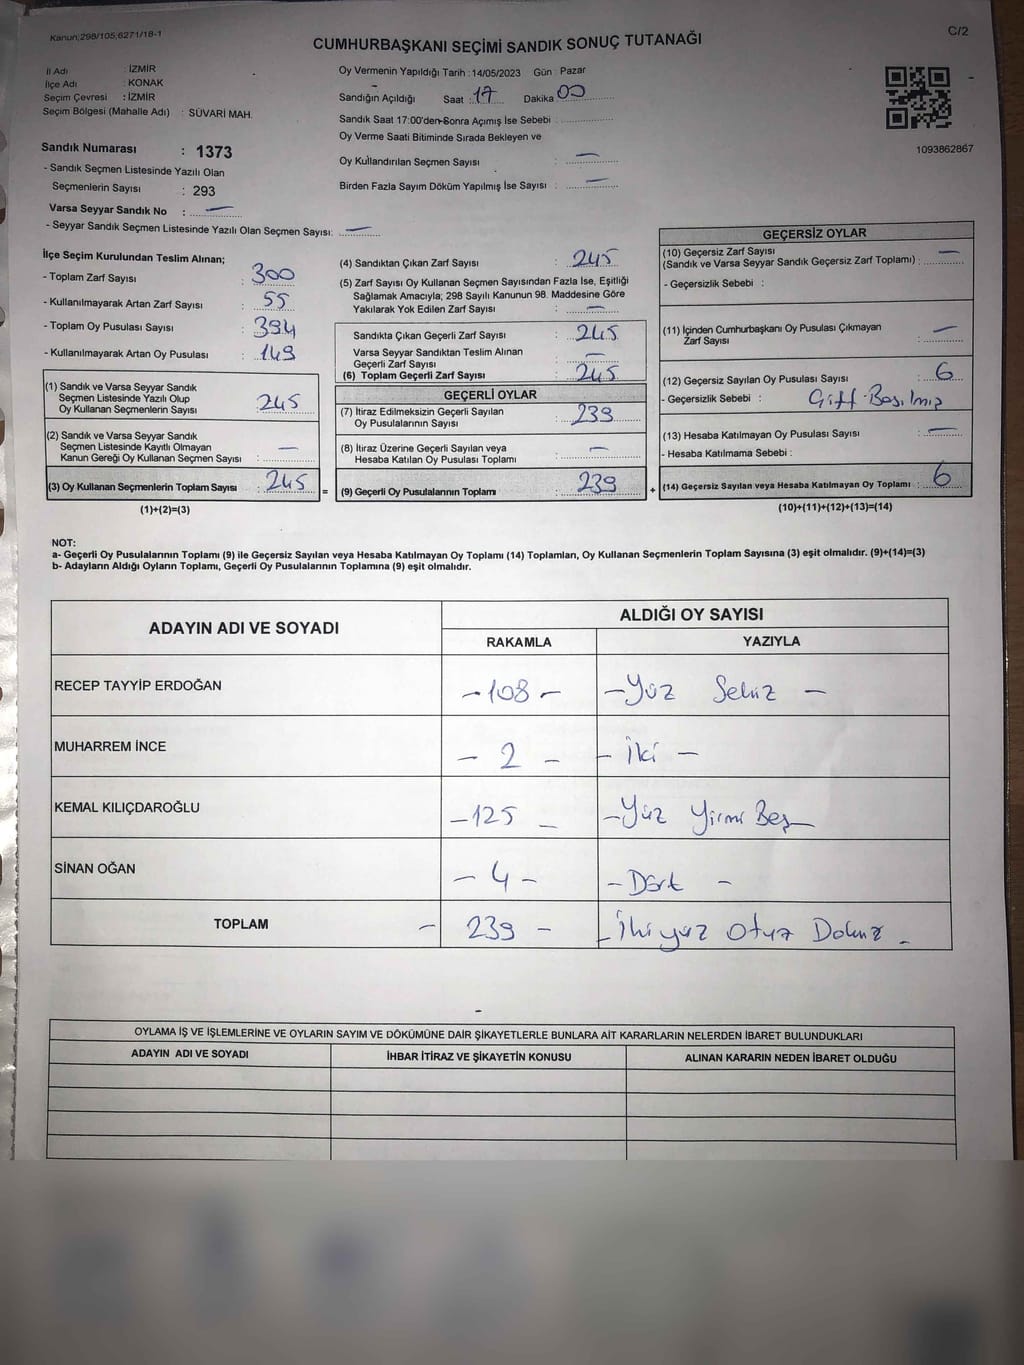 Kanun;298/105,6271/18-1
C/2
CUMHURBAŞKANI SEÇİMİ SANDIK SONUÇ TUTANAĞI
İl Adı : İZMİR
İlçe Adı : KONAK
Seçim Çevresi : İZMİR
Seçim Bölgesi (Mahalle Adı) : SÜVARİ MAH.
Sandık Numarası : 1373
- Sandık Seçmen Listesinde Yazılı Olan
Seçmenlerin Sayısı : 293
Varsa Seyyar Sandık No : —
- Seyyar Sandık Seçmen Listesinde Yazılı Olan Seçmen Sayısı: —
Oy Vermenin Yapıldığı Tarih : 14/05/2023 Gün : Pazar
Sandığın Açıldığı Saat : 17 Dakika 00
Sandık Saat 17:00'den Sonra Açımış İse Sebebi :
Oy Verme Saati Bitiminde Sırada Bekleyen ve
Oy Kullandırılan Seçmen Sayısı : —
Birden Fazla Sayım Döküm Yapılmış İse Sayısı : —
1093862867
İlçe Seçim Kurulundan Teslim Alınan;
- Toplam Zarf Sayısı : 300
- Kullanılmayarak Artan Zarf Sayısı : 55
- Toplam Oy Pusulası Sayısı : 394
- Kullanılmayarak Artan Oy Pusulası : 149
(1) Sandık ve Varsa Seyyar Sandık
Seçmen Listesinde Yazılı Olup
Oy Kullanan Seçmenlerin Sayısı : 245
(2) Sandık ve Varsa Seyyar Sandık
Seçmen Listesinde Kayıtlı Olmayan
Kanun Gereği Oy Kullanan Seçmen Sayısı : —
(3) Oy Kullanan Seçmenlerin Toplam Sayısı : 245 =
(1)+(2)=(3)
(4) Sandıktan Çıkan Zarf Sayısı : 245
(5) Zarf Sayısı Oy Kullanan Seçmen Sayısından Fazla İse, Eşitliği
Sağlamak Amacıyla; 298 Sayılı Kanunun 98. Maddesine Göre
Yakılarak Yok Edilen Zarf Sayısı : —
Sandıkta Çıkan Geçerli Zarf Sayısı : 245
Varsa Seyyar Sandıktan Teslim Alınan
Geçerli Zarf Sayısı : —
(6) Toplam Geçerli Zarf Sayısı : 245
GEÇERLİ OYLAR
(7) İtiraz Edilmeksizin Geçerli Sayılan
Oy Pusulalarının Sayısı : 239
(8) İtiraz Üzerine Geçerli Sayılan veya
Hesaba Katılan Oy Pusulası Toplamı : —
(9) Geçerli Oy Pusulalarının Toplamı : 239 +
GEÇERSİZ OYLAR
(10) Geçersiz Zarf Sayısı
(Sandık ve Varsa Seyyar Sandık Geçersiz Zarf Toplamı) : —
- Geçersizlik Sebebi :
(11) İçinden Cumhurbaşkanı Oy Pusulası Çıkmayan
Zarf Sayısı : —
(12) Geçersiz Sayılan Oy Pusulası Sayısı : 6
- Geçersizlik Sebebi : Çift Basılmış
(13) Hesaba Katılmayan Oy Pusulası Sayısı : —
- Hesaba Katılmama Sebebi :
(14) Geçersiz Sayılan veya Hesaba Katılmayan Oy Toplamı : 6
(10)+(11)+(12)+(13)=(14)
NOT:
a- Geçerli Oy Pusulalarının Toplamı (9) ile Geçersiz Sayılan veya Hesaba Katılmayan Oy Toplamı (14) Toplamları, Oy Kullanan Seçmenlerin Toplam Sayısına (3) eşit olmalıdır. (9)+(14)=(3)
b- Adayların Aldığı Oyların Toplamı, Geçerli Oy Pusulalarının Toplamına (9) eşit olmalıdır.
ADAYIN ADI VE SOYADI
ALDIĞI OY SAYISI
RAKAMLA YAZIYLA
RECEP TAYYİP ERDOĞAN - 108 - - Yüz Sekiz -
MUHARREM İNCE - 2 - - İki -
KEMAL KILIÇDAROĞLU - 125 - - Yüz Yirmi Beş -
SİNAN OĞAN - 4 - - Dört -
TOPLAM - 239 - - İkiyüz Otuz Dokuz -
OYLAMA İŞ VE İŞLEMLERİNE VE OYLARIN SAYIM VE DÖKÜMÜNE DAİR ŞİKAYETLERLE BUNLARA AİT KARARLARIN NELERDEN İBARET BULUNDUKLARI
ADAYIN ADI VE SOYADI
İHBAR İTİRAZ VE ŞİKAYETİN KONUSU
ALINAN KARARIN NEDEN İBARET OLDUĞU